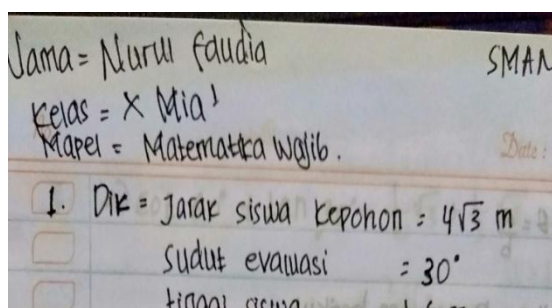 Nama = Nurul faudia
SMAN
Kelas = X Mia¹
Mapel = Matematika wajib.
Date :
1. Dik = Jarak siswa kepohon = 4√3 m
sudut evaluasi = 30°
tinggi siswa